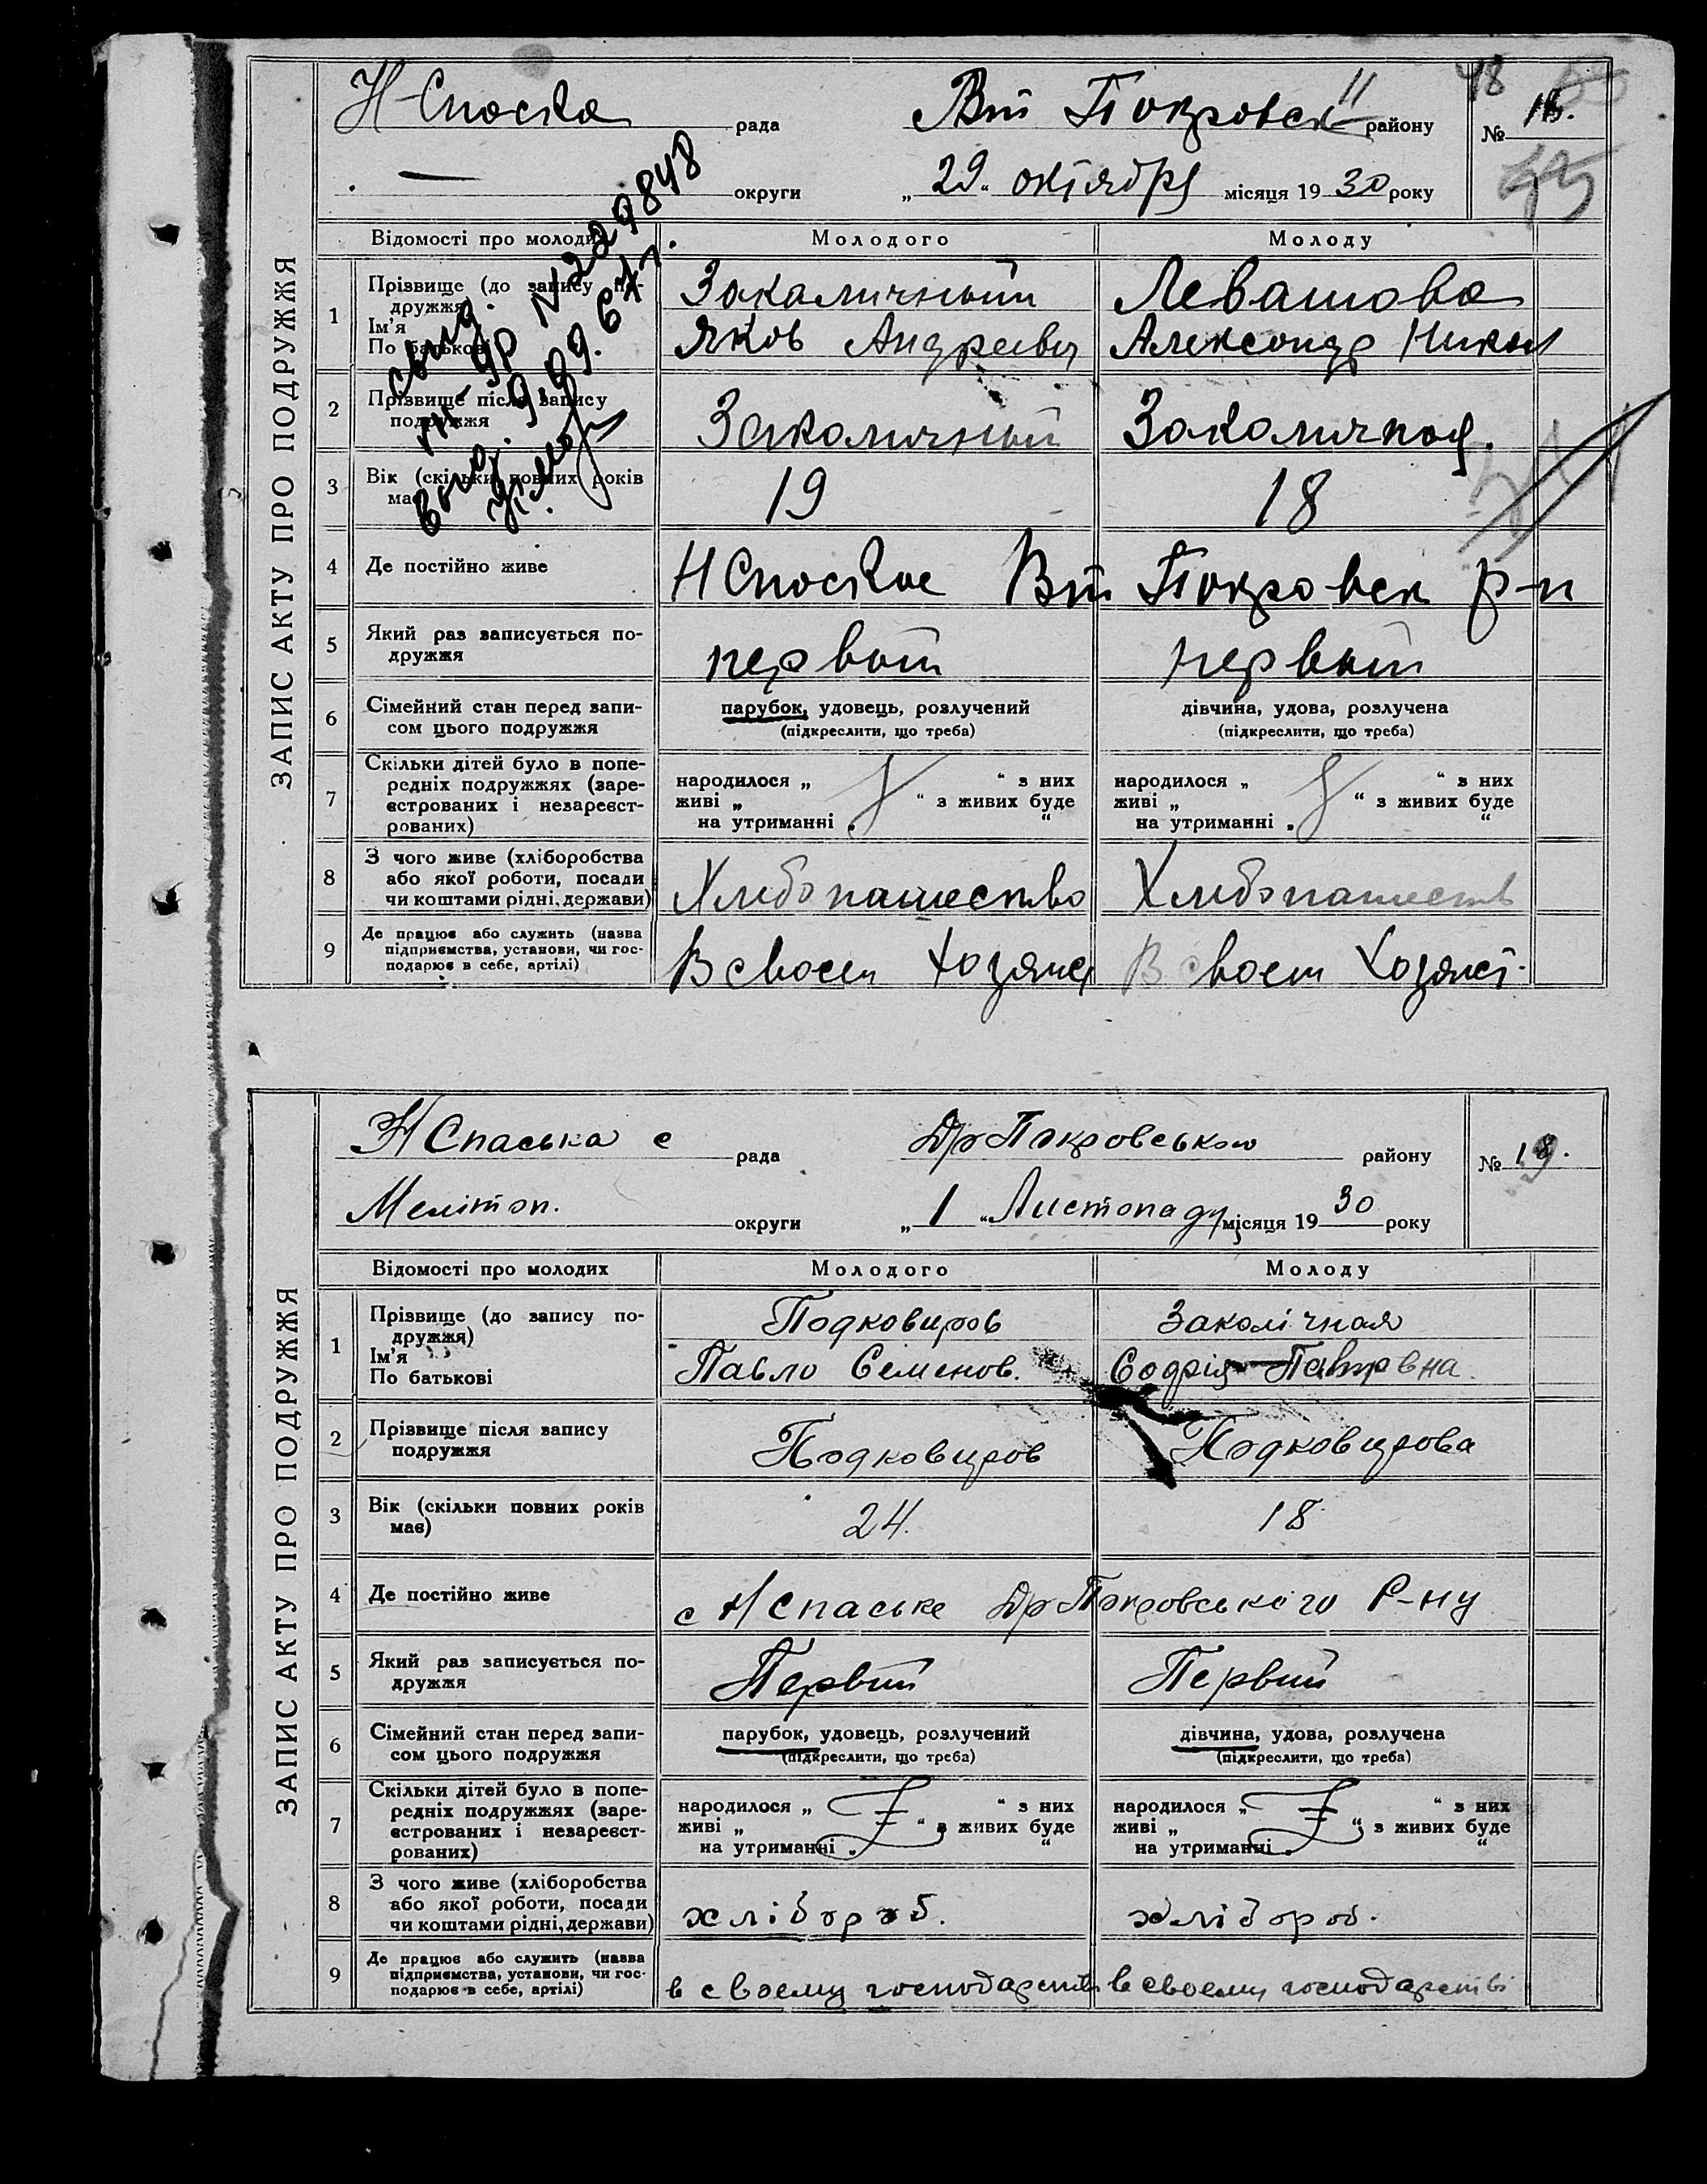 Н-Спаска рада Вт Покровск районy № 18.
48
— округи „29“ октября місяця 1930 року
ЗАПИС АКТУ ПРО ПОДРУЖЖЯ
Відомості про молодих Молодого Молоду
1 Прізвище (до запису по-дружжя) Закаличный Левашова
Ім'я
По батькові Яков Андреевич Александр Никол
2 Прізвище після запису подружжя Закаличный Закаличная.
3 Вік (скільки повних років має) 19 18
4 Де постійно живе Н Спаское Вт Покровск р-н
5 Який раз записується по-дружжя первый первый
6 Сімейний стан перед запи-сом цього подружжя парубок, удовець, розлучений дівчина, удова, розлучена
(підкреслити, що треба) (підкреслити, що треба)
7 Скільки дітей було в попе-редніх подружжях (заре-єстрованих і незареєст-рованих)
народилося „ “ з них народилося „ “ з них
живі „ “ з живих буде живі „ “ з живих буде
на утриманні „ “ на утриманні „ “
8 З чого живе (хліборобства або якої роботи, посади чи коштами рідні, держави) Хлибопашество Хлибопашеств
9 Де працює або служить (назва підприємства, установи, чи гос-подарює в себе, артілі) В своем Хозяйс В своем Хозяйст.
свид.
№ 229848
Н Спаська с рада Др Покровського району № 19.
Меліт оп. округи „1“ Листопаду місяця 1930 року
ЗАПИС АКТУ ПРО ПОДРУЖЖЯ
Відомості про молодих Молодого Молоду
1 Прізвище (до запису по-дружжя) Подковиров Заколічная
Ім'я
По батькові Павло Семенов. Петровна
2 Прізвище після запису подружжя Подковиров Подковирова
3 Вік (скільки повних років має) 24. 18
4 Де постійно живе с Н Спаське Др Покровського Р-ну
5 Який раз записується по-дружжя Первий Первий
6 Сімейний стан перед запи-сом цього подружжя парубок, удовець, розлучений дівчина, удова, розлучена
(підкреслити, що треба) (підкреслити, що треба)
7 Скільки дітей було в попе-редніх подружжях (заре-єстрованих і незареєст-рованих)
народилося „ “ з них народилося „ “ з них
живі „ “ з живих буде живі „ “ з живих буде
на утриманні „ “ на утриманні „ “
8 З чого живе (хліборобства або якої роботи, посади чи коштами рідні, держави) хлібороб. хлібороб.
9 Де працює або служить (назва підприємства, установи, чи гос-подарює в себе, артілі) в своєму господарстві в своєму господарстві